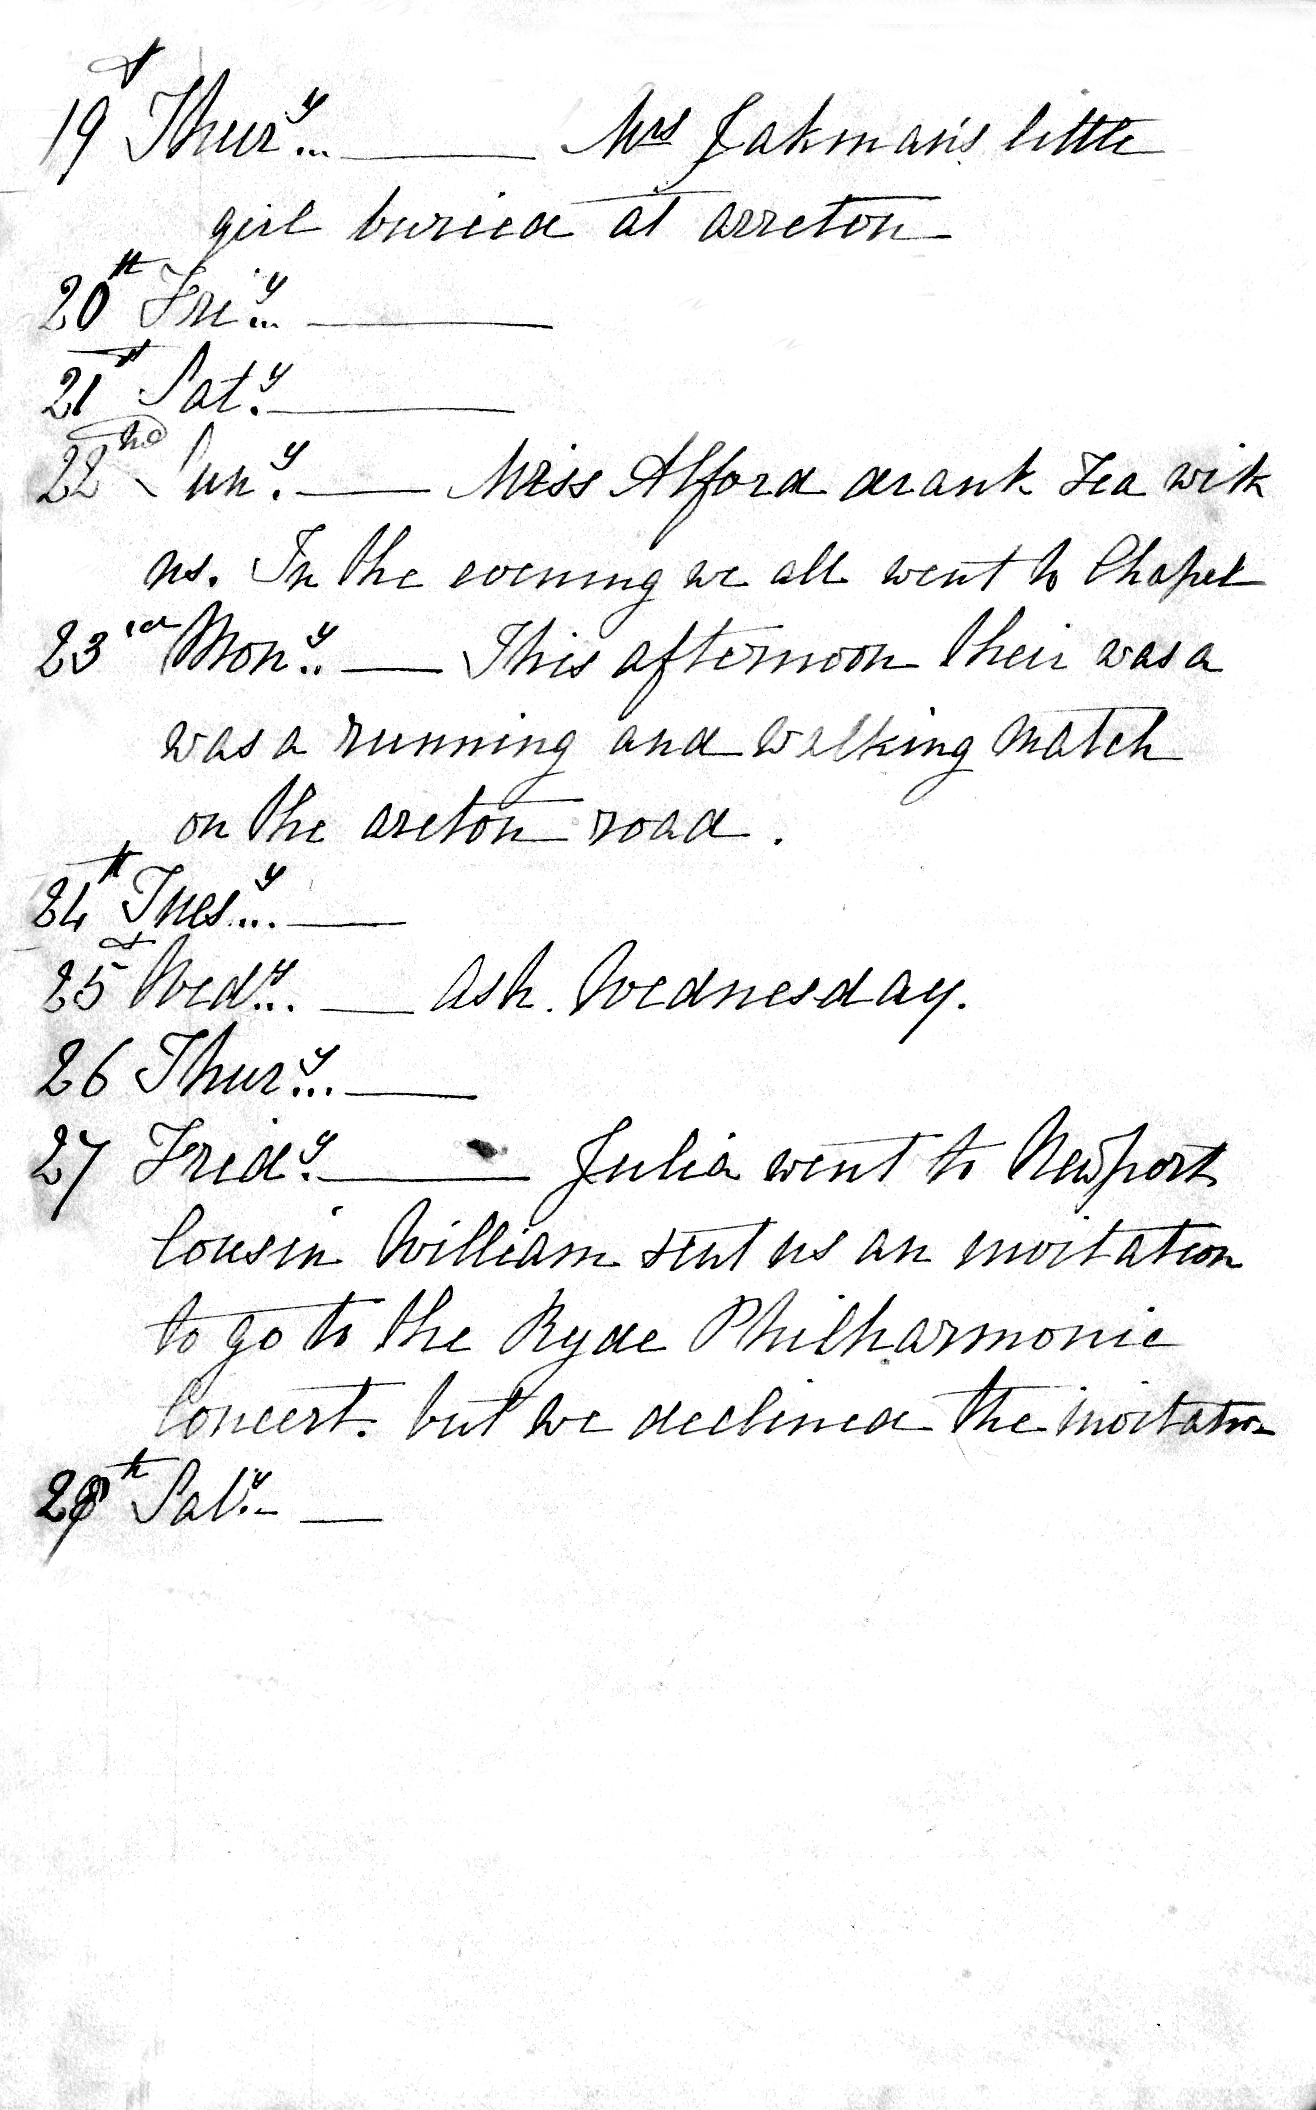 19th Thury... Mrs Jakman's little
girl buried at arreton
20th Friy...
21st Saty.
22nd Suny. Miss Alford drank Tea with
us. In the evening we all went to Chapel
23rd Mony.. This afternoon their was a
was a running and walking match
on the areton road.
24th Tuesy...
25th Wedy... Ash. Wednesday.
26 Thury...
27 Fridy. Julia went to Newport
Cousin William sent us an invitation
to go to the Ryde Philharmonic
Concert. but we declined the invitation
28th Saty.